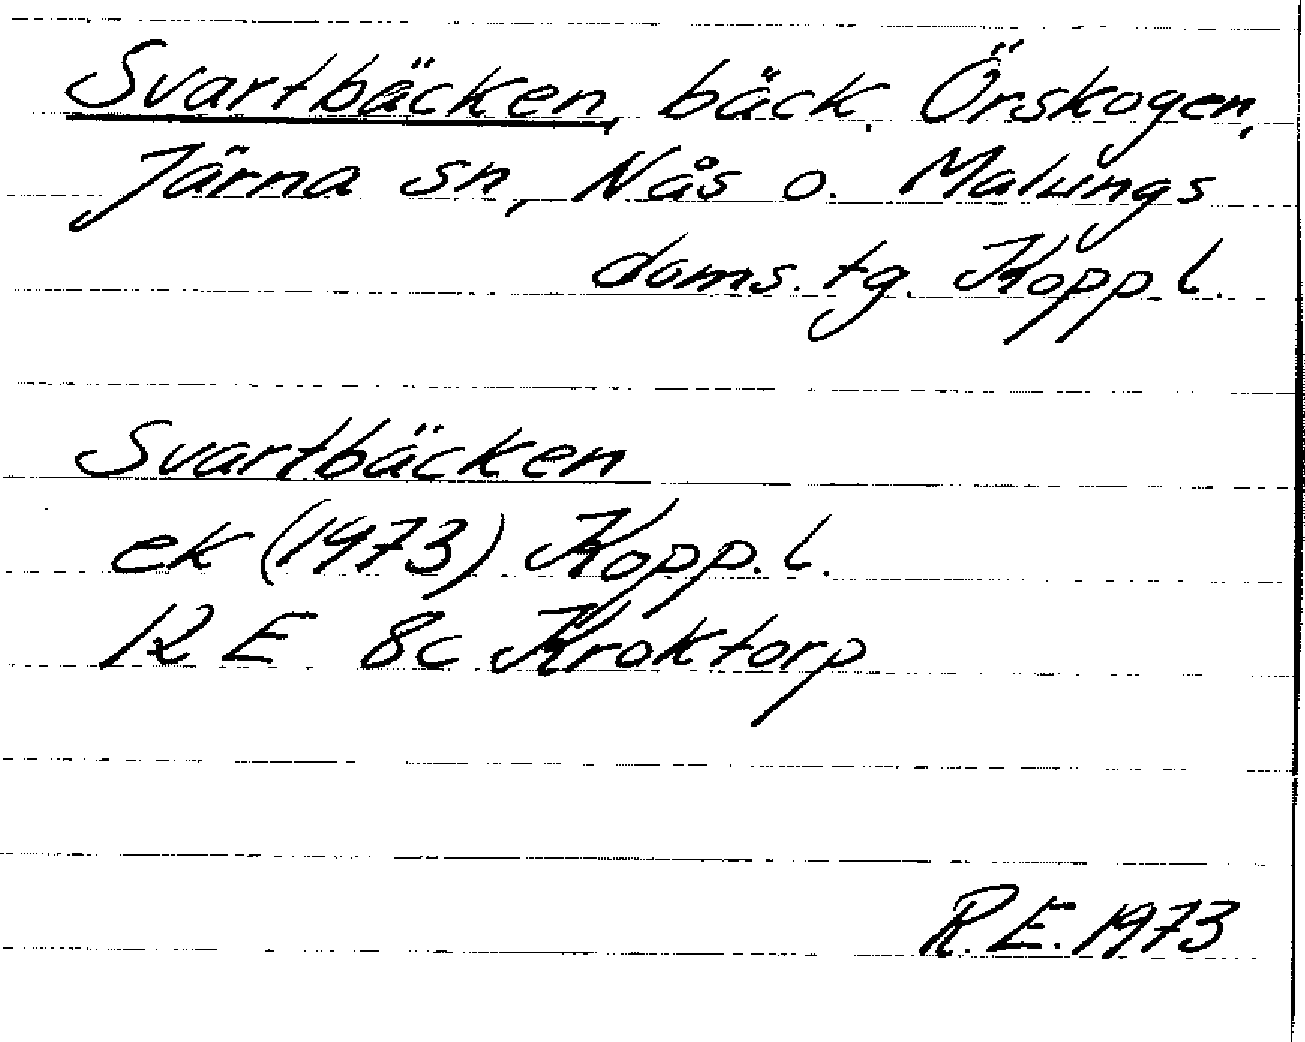 Svartbäcken, bäck. Örskogen,
Järna sn, Nås o. Malungs
doms. tg. Kopp. l.
Svartbäcken
ek (1973) Kopp. l.
12 E 8c Kroktorp
R.E. 1973